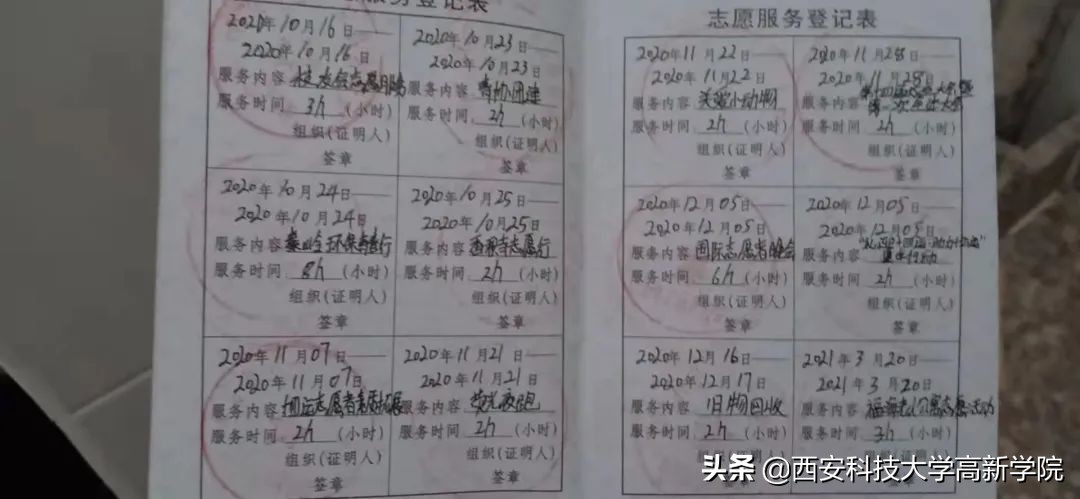 志愿服务登记表
2020年10月16日
2020年10月16日
服务内容 校友会志愿服务
服务时间 3h (小时)
组织(证明人)
签章
2020年10月23日
2020年10月23日
服务内容 青协团建
服务时间 2h (小时)
组织(证明人)
签章
2020年10月24日
2020年10月24日
服务内容 秦岭环保
服务时间 8h (小时)
组织(证明人)
签章
2020年10月25日
2020年10月25日
服务内容
服务时间 2h (小时)
组织(证明人)
签章
2020年11月07日
2020年11月07日
服务内容 志愿者素质拓展
服务时间 2h (小时)
组织(证明人)
签章
2020年11月21日
2020年11月21日
服务内容 荧光夜跑
服务时间 2h (小时)
组织(证明人)
签章
志愿服务登记表
2020年11月22日
2020年11月22日
服务内容 关爱小动物
服务时间 2h (小时)
组织(证明人)
签章
2020年11月28日
2020年11月28日
服务内容
服务时间 2h (小时)
组织(证明人)
签章
2020年12月05日
2020年12月05日
服务内容 国际志愿者晚会
服务时间 6h (小时)
组织(证明人)
签章
2020年12月05日
2020年12月05日
服务内容
服务时间 2h (小时)
组织(证明人)
签章
2020年12月16日
2020年12月17日
服务内容 旧物回收
服务时间 2h (小时)
组织(证明人)
2021年3月20日
2021年3月20日
服务内容
服务时间 3h (小时)
头条 @西安科技大学高新学院